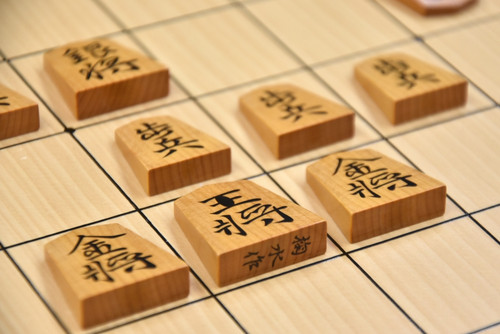 銀将
歩兵
歩兵
歩兵
金将
王将
掬水作
金将